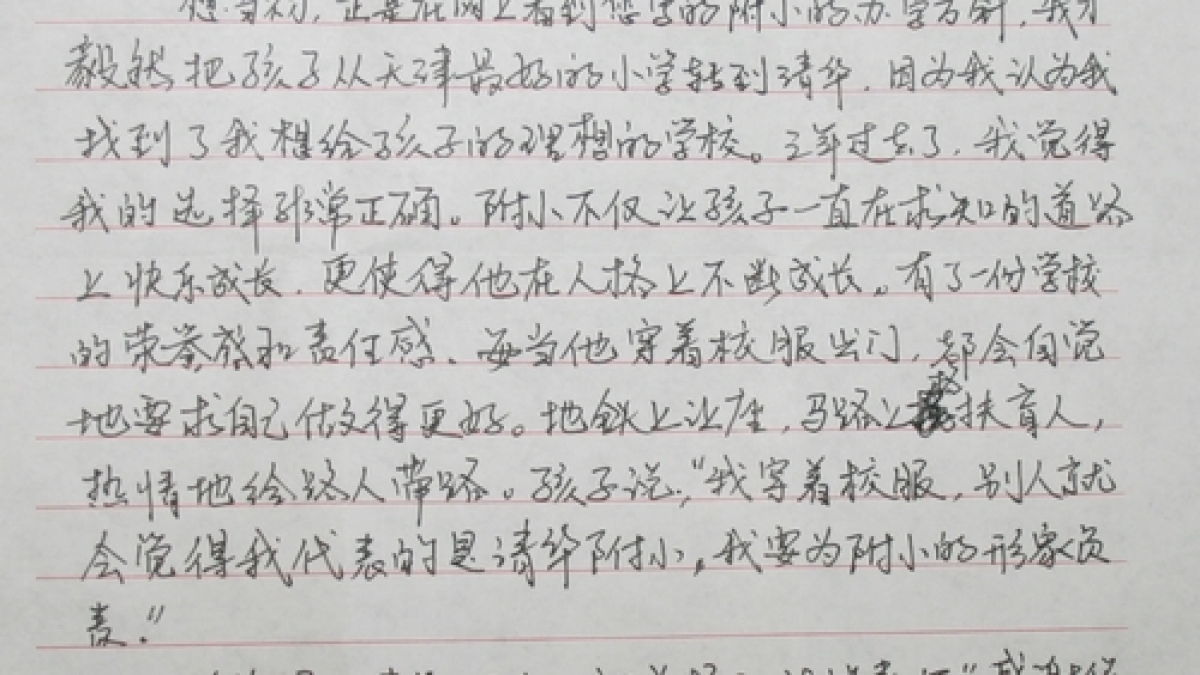 想当初，正是在网上看到您写的附小的办学方针，我才
毅然把孩子从天津最好的小学转到清华，因为我认为我
找到了我想给孩子的理想的学校。三年过去了，我觉得
我的选择非常正确。附小不仅让孩子一直在求知的道路
上快乐成长，更使得他在人格上不断成长。有了一份学校
的荣誉感和责任感，每当他穿着校服出门，都会自觉
地要求自己做得更好。地铁上让座，马路上扶盲人，
热情地给路人带路。孩子说，“我穿着校服，别人就
会觉得我代表的是清华附小，我要为附小的形象负
责。”
感谢